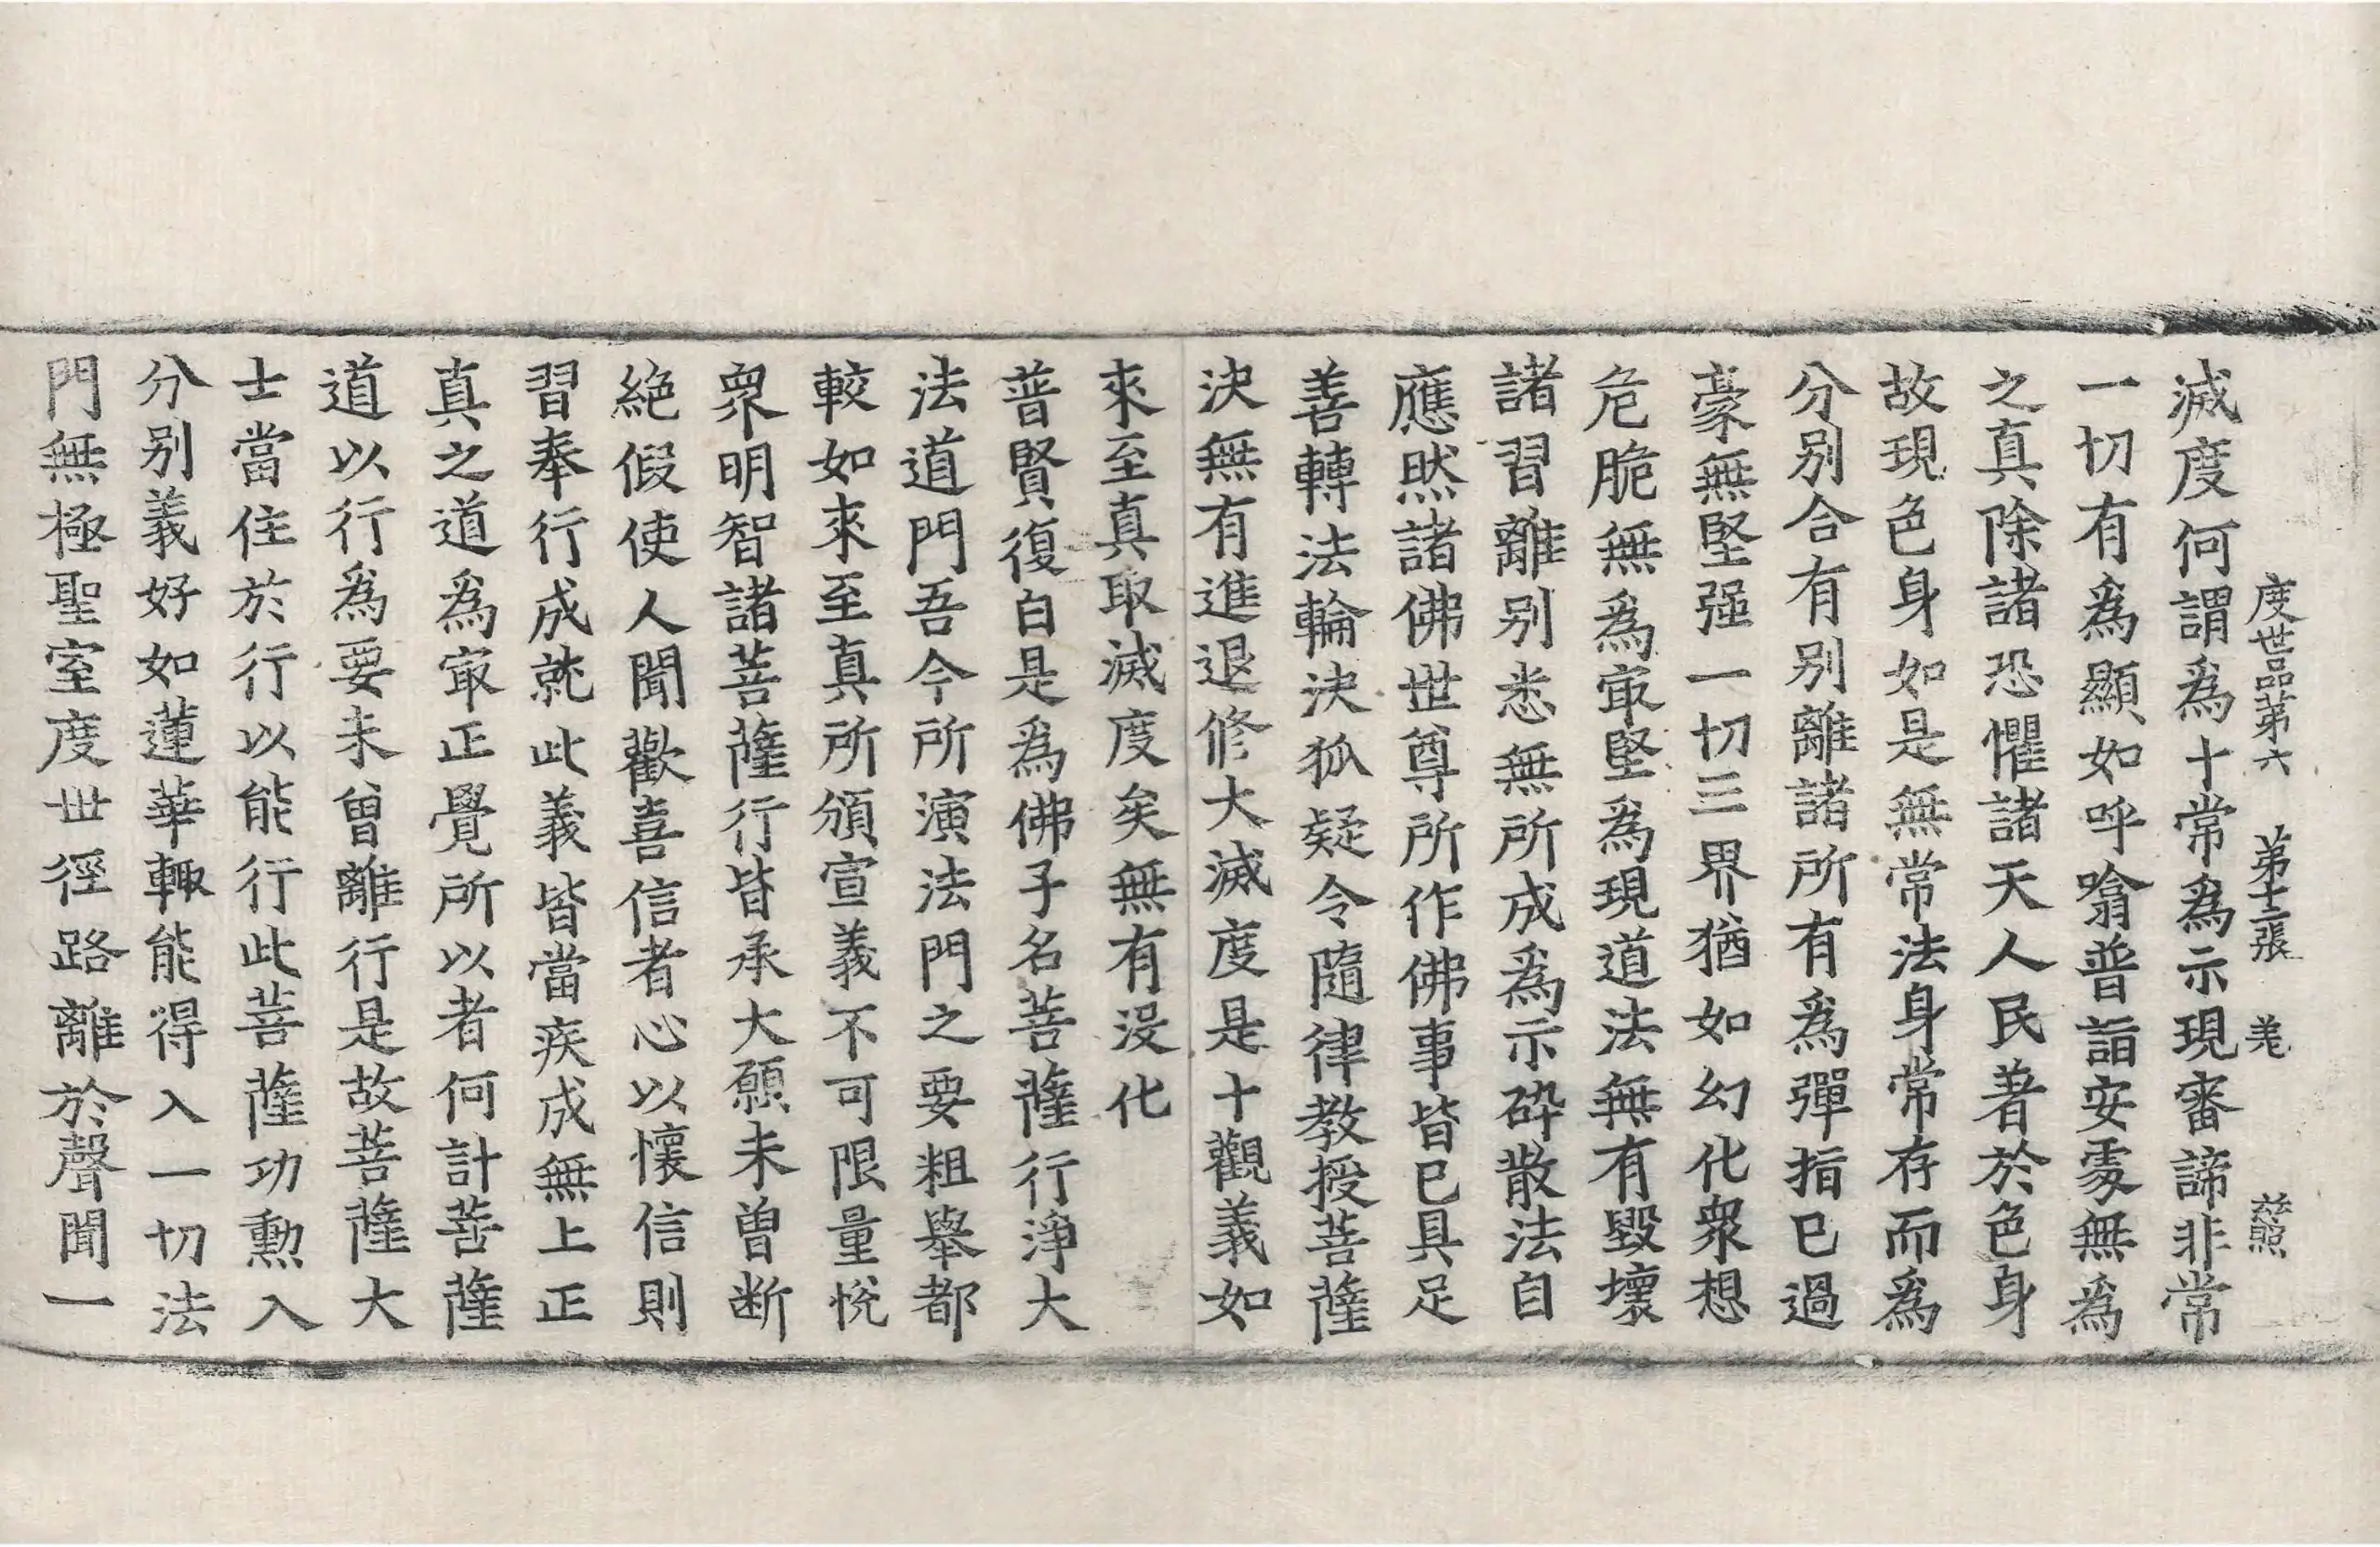 度世品苐六 苐十二張 羌 慈照
滅度何謂為十常為示現審諦非常
一切有為顯如呼噏普詣安處無為
之真除諸恐懼諸天人民著於色身
故現色身如是無常法身常存而為
分別合有別離諸所有為彈指已過
豪無堅强一切三界猶如幻化衆想
危脆無為冣堅為現道法無有毀壞
諸習離別悉無所成為示碎散法自
應然諸佛世尊所作佛事皆已具足
善轉法輪決狐疑令隨律教授菩薩
決無有進退修大滅度是十觀義如
來至真取滅度矣無有沒化
普賢復白是為佛子名菩薩行淨大
法道門吾今所演法門之要粗舉都
較如來至真所頒宣義不可限量悅
衆明智諸菩薩行皆承大願未曽断
絕假使人聞歡喜信者心以懷信則
習奉行成就此義皆當疾成無上正
真之道為冣正覺所以者何計菩薩
道以行為要未曽離行是故菩薩大
士當住於行以能行此菩薩功勲入
分別義好如蓮華輙能得入一切法
門無極聖室度世徑路離於聲聞一